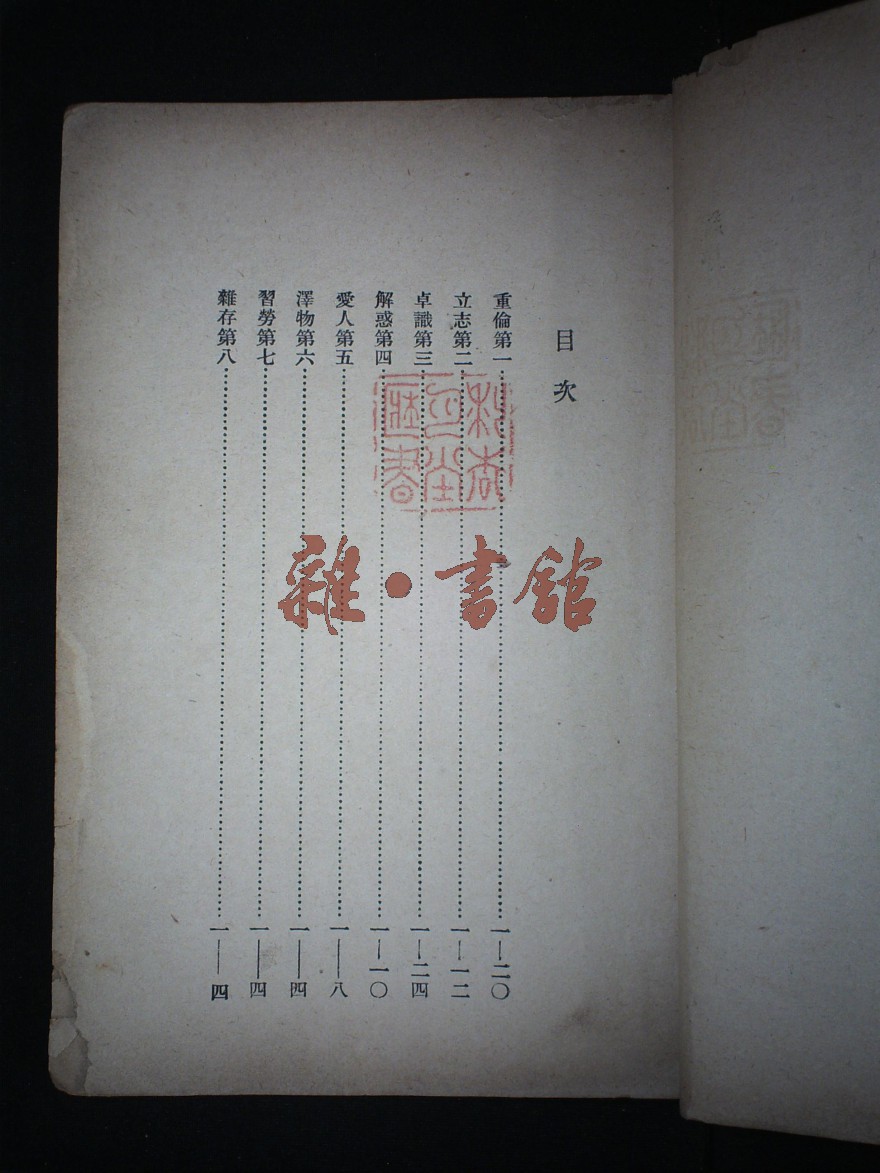 目次
重倫第一……一—二〇
立志第二……一—一二
卓識第三……一—二四
解惑第四……一—一〇
愛人第五……一—八
澤物第六……一—四
習勞第七……一—四
雜存第八……一—四
雜·書館